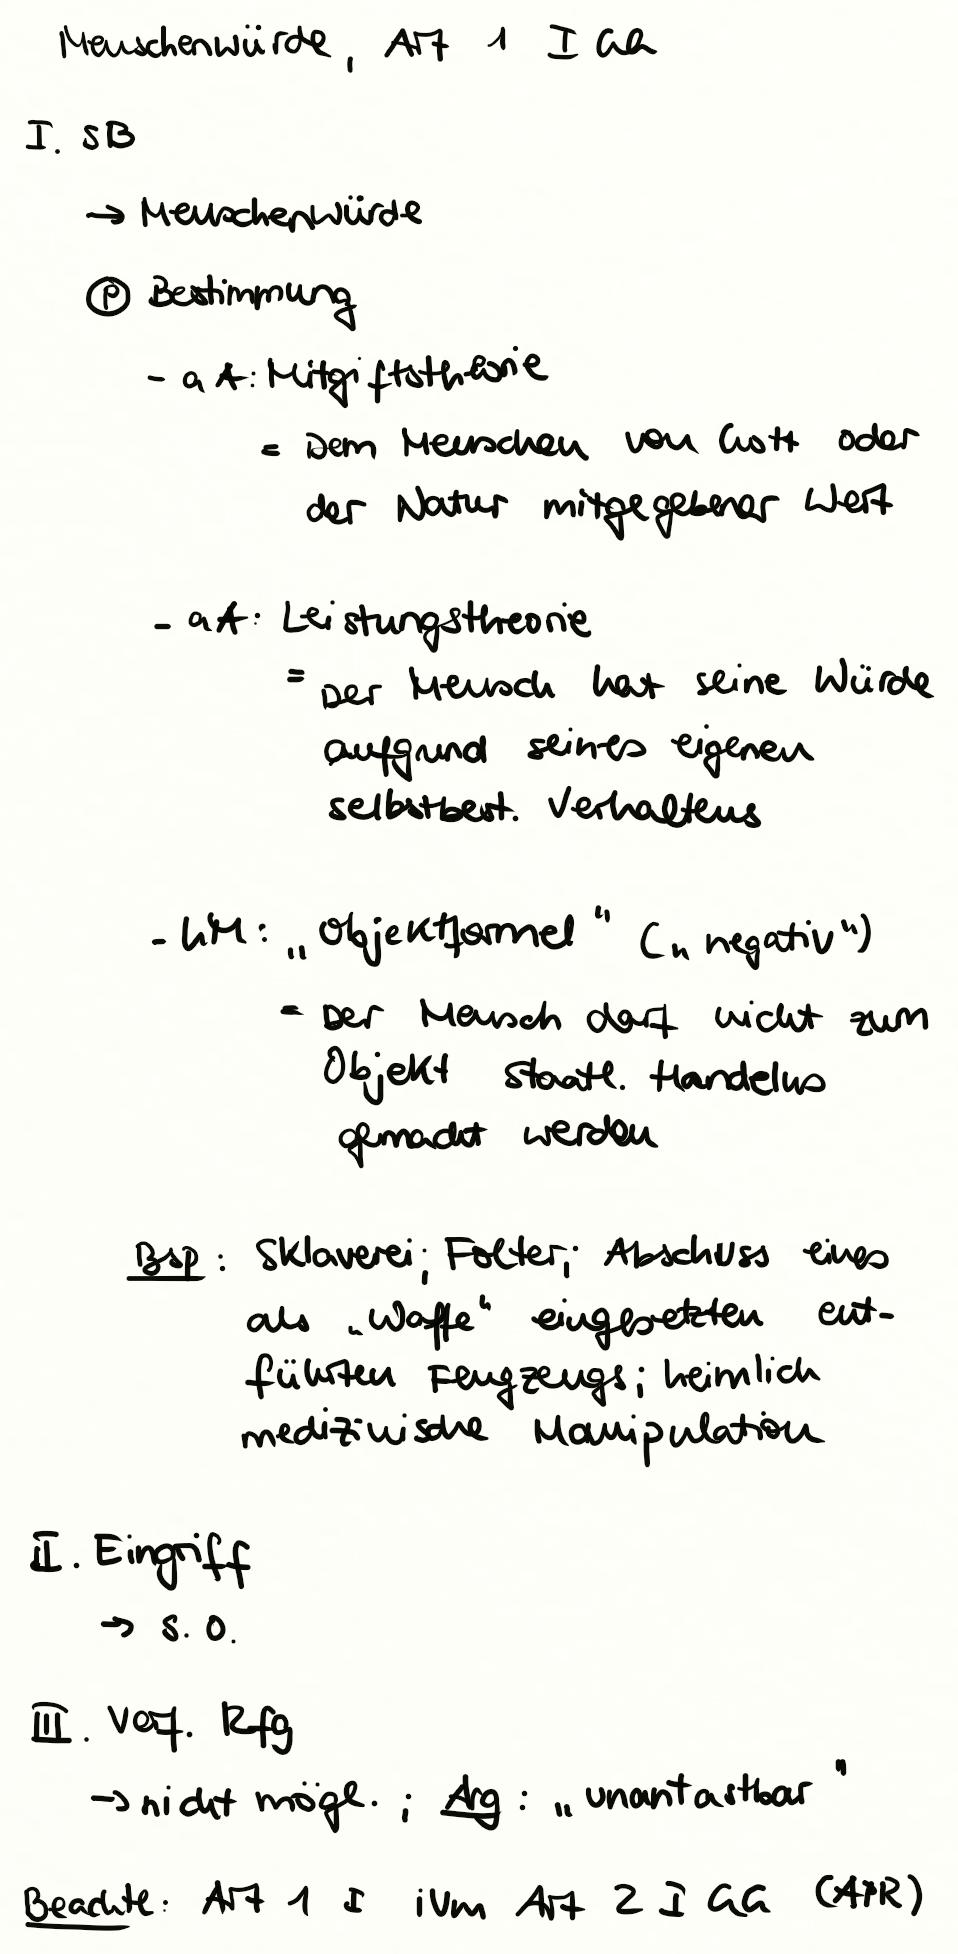 Menschenwürde, Art 1 I GG
I. SB
→ Menschenwürde
Ⓟ Bestimmung
- aA: Mitgiftstheorie
= Dem Menschen von Gott oder
der Natur mitgegebener Wert
- aA: Leistungstheorie
= Der Mensch hat seine Würde
aufgrund seines eigenen
selbstbest. Verhaltens
- hM: „Objektformel" („negativ")
= Der Mensch darf nicht zum
Objekt staatl. Handelns
gemacht werden
Bsp: Sklaverei; Folter; Abschuss eines
als „Waffe" eingesetzten ent-
führten Feugzeugs; heimlich
medizinische Manipulation
II. Eingriff
→ s.o.
III. Verf. Rfg
→ nicht mögl.; Arg: „unantastbar"
Beachte: Art 1 I iVm Art 2 I GG (APR)